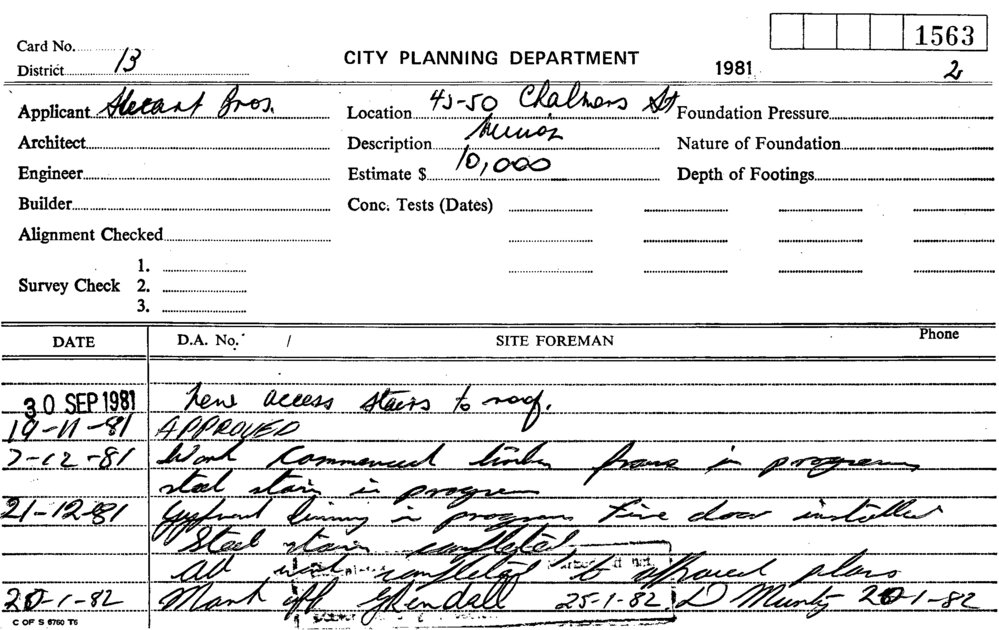 1563
Card No.
District 13
CITY PLANNING DEPARTMENT
1981
2
Applicant Bros.
Location 45-50 Chalmers St
Foundation Pressure
Architect
Description Minor
Nature of Foundation
Engineer
Estimate $ 10,000
Depth of Footings
Builder
Conc. Tests (Dates)
Alignment Checked
Survey Check
1.
2.
3.
DATE D.A. No. / SITE FOREMAN Phone
30 SEP 1981 New access stairs to roof.
19-11-81 APPROVED
7-12-81 Work Commenced timber frame in progress
steel stair in progress
21-12-81 Gyprock lining in progress Fire door installed
Steel stair completed
All work completed to approved plans
20-1-82 Mark off Grendall 25-1-82 D Munty 20-1-82
C OF S 6760 T6